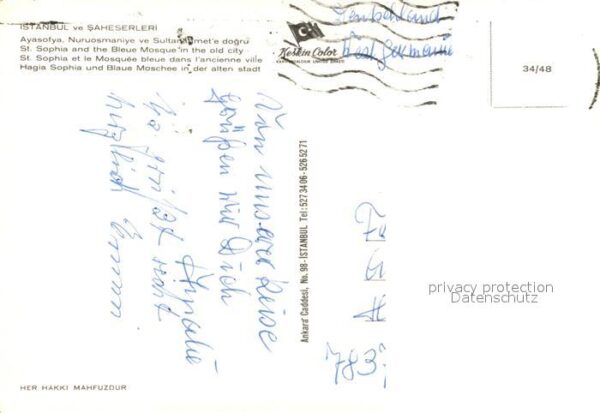 İSTANBUL ve ŞAHESERLERİ
Ayasofya, Nuruosmaniye ve Sultanahmet'e doğru
St. Sophia and the Bleue Mosque in the old city
St. Sophia et le Mosquée bleue dans l'ancienne ville
Hagia Sophia und Blaue Moschee in der alten stadt
Keskin Color
Deutschland
West Germanie
34/48
Von unserer Reise
grüßen wir Dich
Es grüßt recht
herzlich
Ankara Caddesi, No. 98-İSTANBUL Tel: 5273406-5265271
783
privacy protection
Datenschutz
HER HAKKI MAHFUZDUR